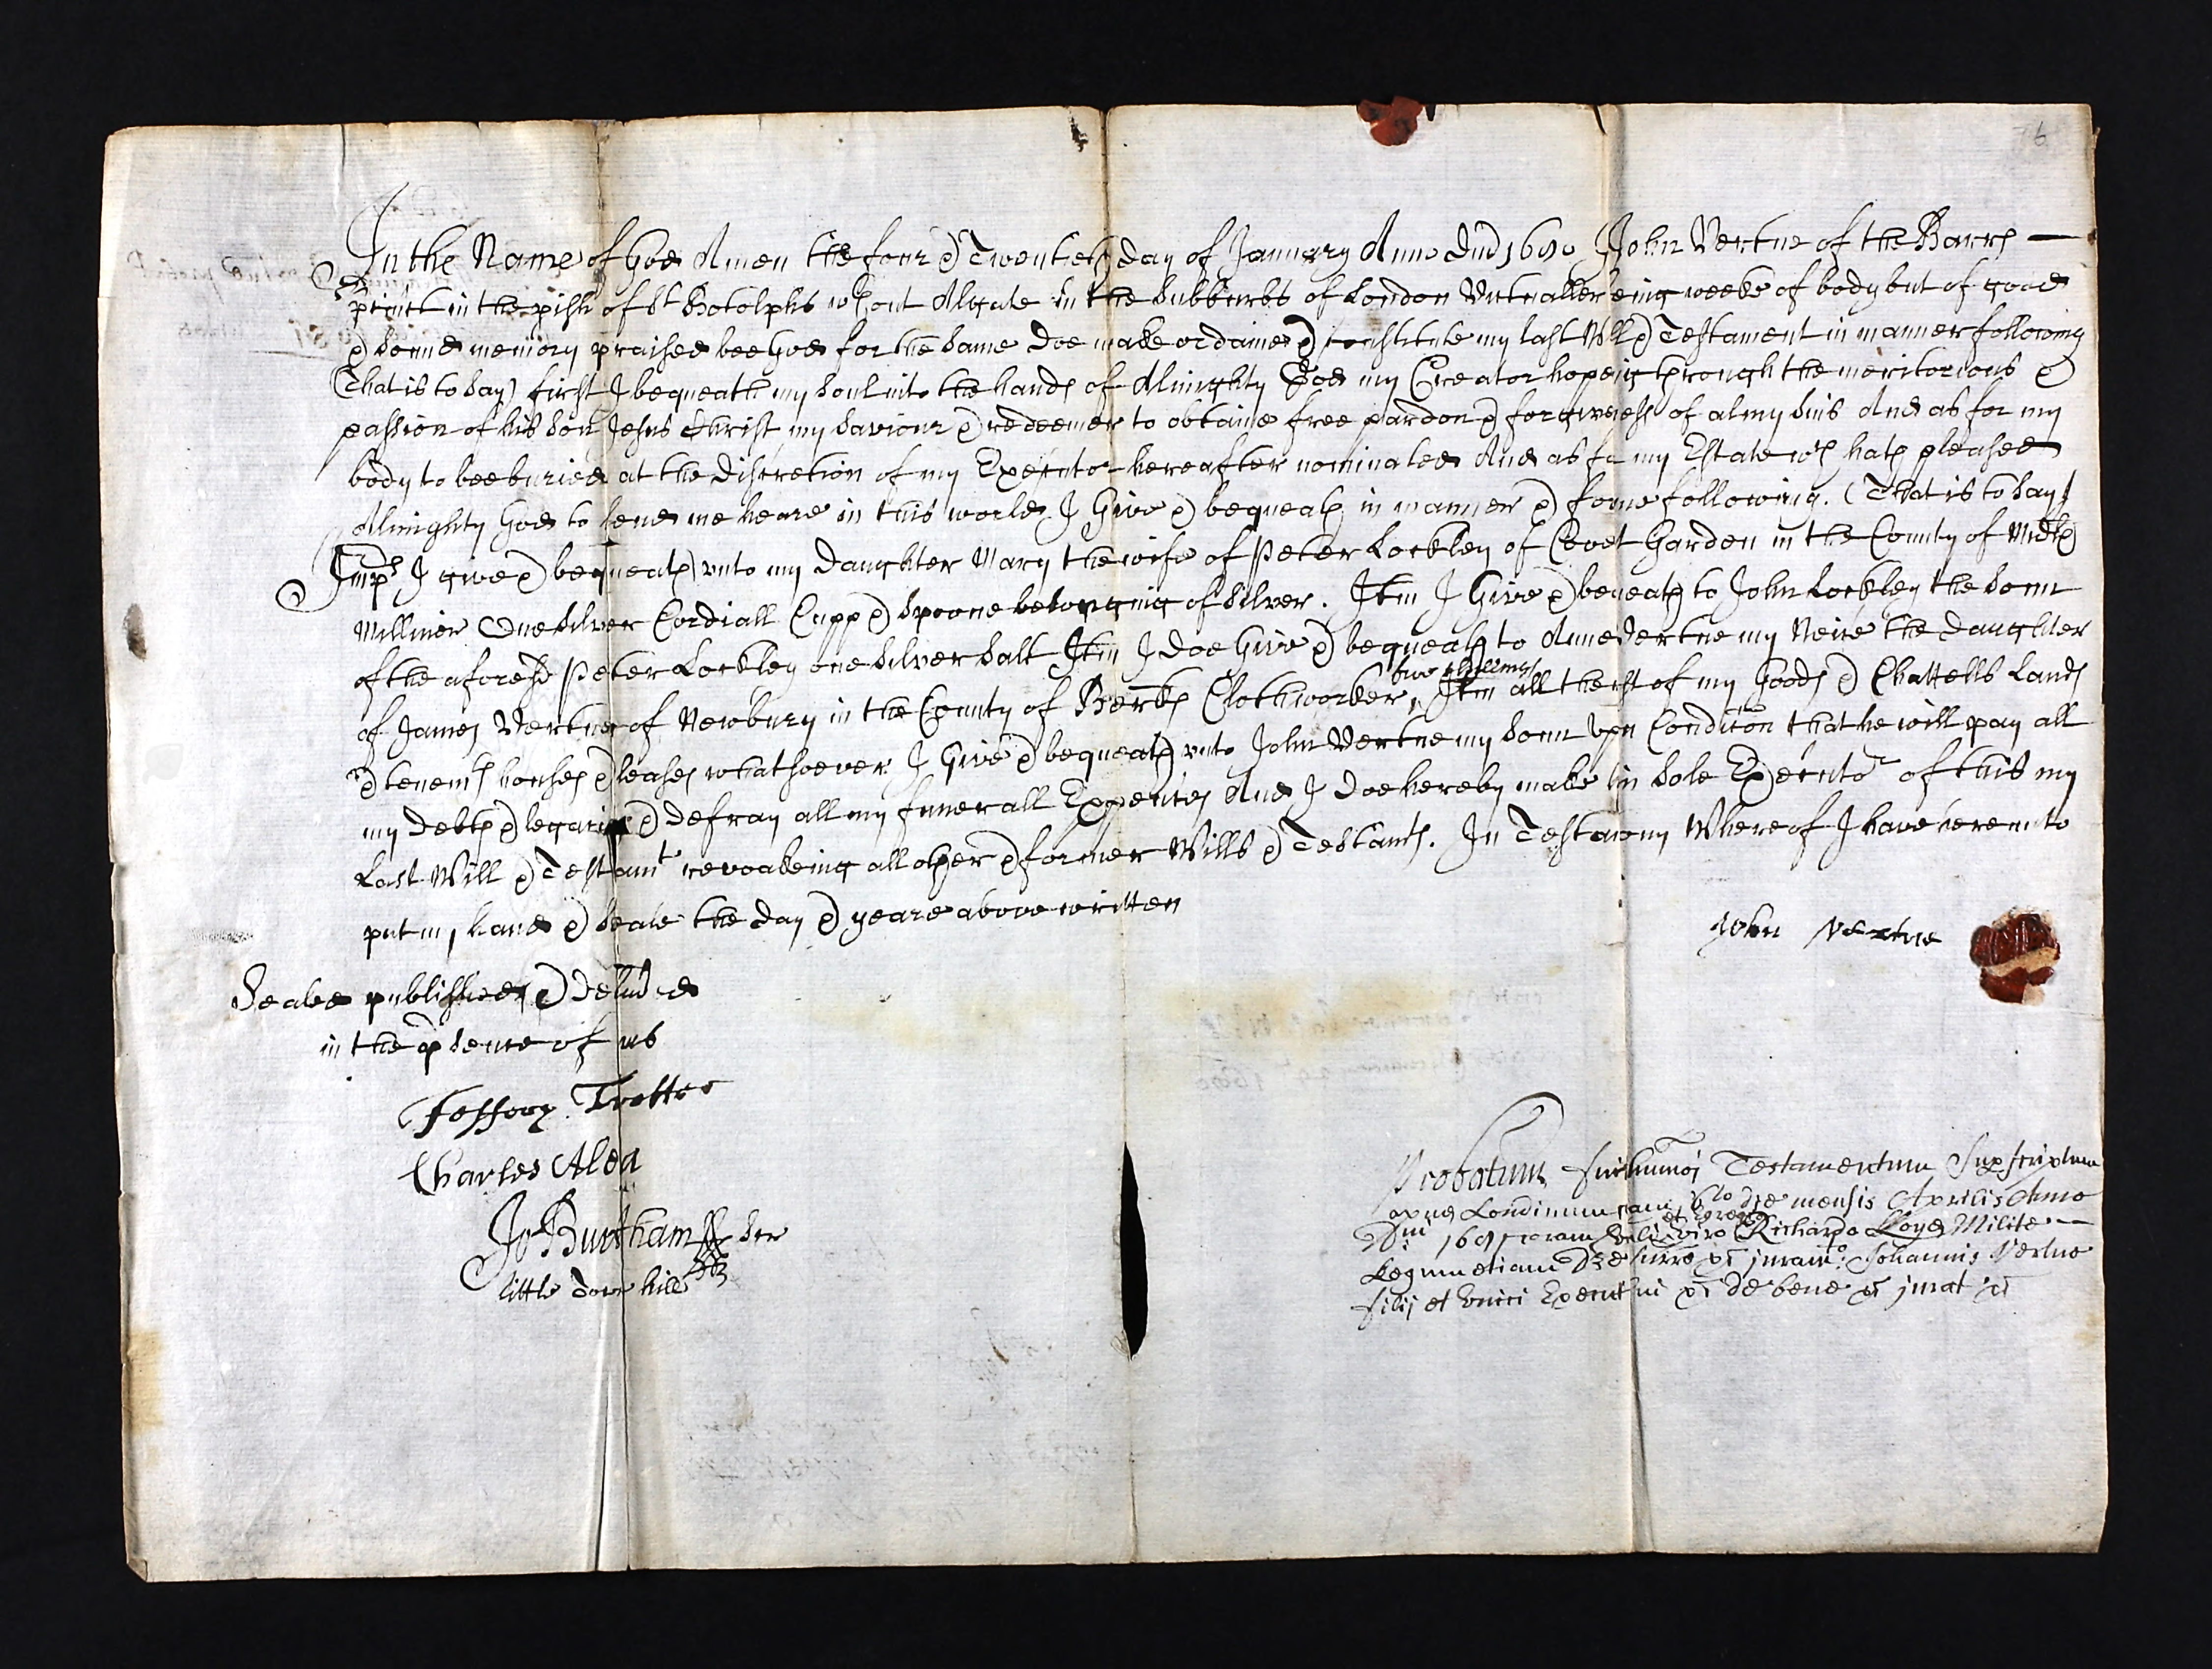 6
In the Name of God Amen the four & Twenteth day of January Anno Dnd 1690 I John Vertue of the Barrs
in the pish of St Botolphs wthout Algate in the Subburbs of London Vitualler being weeke of body but of good
& Sound memory praised bee God for the same doe make ordaine & constitute my last Will & Testament in manner following
(That is to say) first I bequeath my soul into the hands of Almighty God my Creator hopeing through the meritorious &
passion of his son Jesus Christ my Saviour & redeemer to obtaine free pardon & forgiveness of al my sins And as for my
body to bee buried at the discretion of my Executor hereafter nominated And as for my Estate wch hath pleased
Almighty God to lend me heare in this world I Give & bequeath in manner & forme following. (That is to say)
Imps I give & bequeath unto my Daughter Mary the wife of Peter Lockley of Covet Garden in the County of Middx
Milliner One Silver Cordiall Cupp & Spoone belonging of silver. Itm I Give & bequeath to John Lockley the sonn
of the aforesd Peter Lockley one Silver Salt Itm I doe Give & bequeath to Anne Vertue my Neice the daughter
of James Vertue of Newbury in the County of Berks Clothworker, two shillings Itm all the rest of my Goods & Chattells Lands
& tenemts houses & leases whatsoever I Give & bequeath unto John Vertue my sonn upon Condition that he will pay all
my debts & legacies & defray all my funerall Expences And I doe hereby make him sole Executor of this my
Last Will & Testamt revoakeing all other & former Wills & Testamts. In Testamony Whereof I have hereunto
put my hand & seale the day & yeare above written
John Vertue
Sealed published & delivd
in the psence of us
Trotter
Charles Alda
Jo Burkham Scr
little Tower hill
Probatum fuit humoi Testamentum Suprascriptum
apud Londinum 6to die mensis Aprilis Anno
Dni 1691 coram venli et egregio viro Richardo Lloyd Milite
Legum etiam Dre Surro &c juramto Johannis Vertue
filij et unici Executris &c de bene &c jurat &c